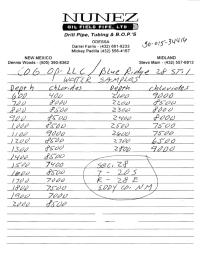 NUNEZ
OIL FIELD PIPE, LTD
Drill Pipe, Tubing & B.O.P.'S
ODESSA
Darrel Farris - (432) 661-9233
Mickey Padilla (432) 556-4167
30-015-34414
NEW MEXICO
Dennis Woods - (505) 390-8362
MIDLAND
Steve Mann - (432) 557-8813
C.O.G. OP. LLC / Blue Ridge 28 ST. 1
WATER SAMPLES
Depth chlorides Depth chlorides
600 400 2100 9000
700 8000 2200 8500
800 8500 2300 8000
900 8500 2400 8000
1,000 8500 2500 7500
1100 9000 2600 7500
1200 8500 2700 6500
1300 8500 2800 9000
1400 8500
1500 7400 SEC. 28
1600 8500 T - 20 S
1700 7000 R - 28 E
1800 7500 EDDY CO. NM
1900 7000
2000 8500